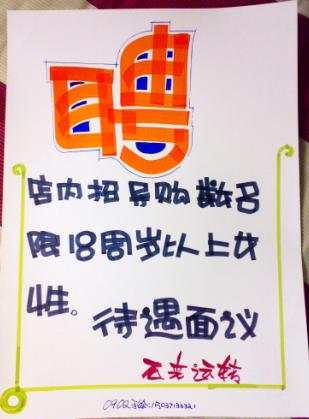 聘
店内招导购数名
限18周岁以上女
性。
待遇面议
石来运转